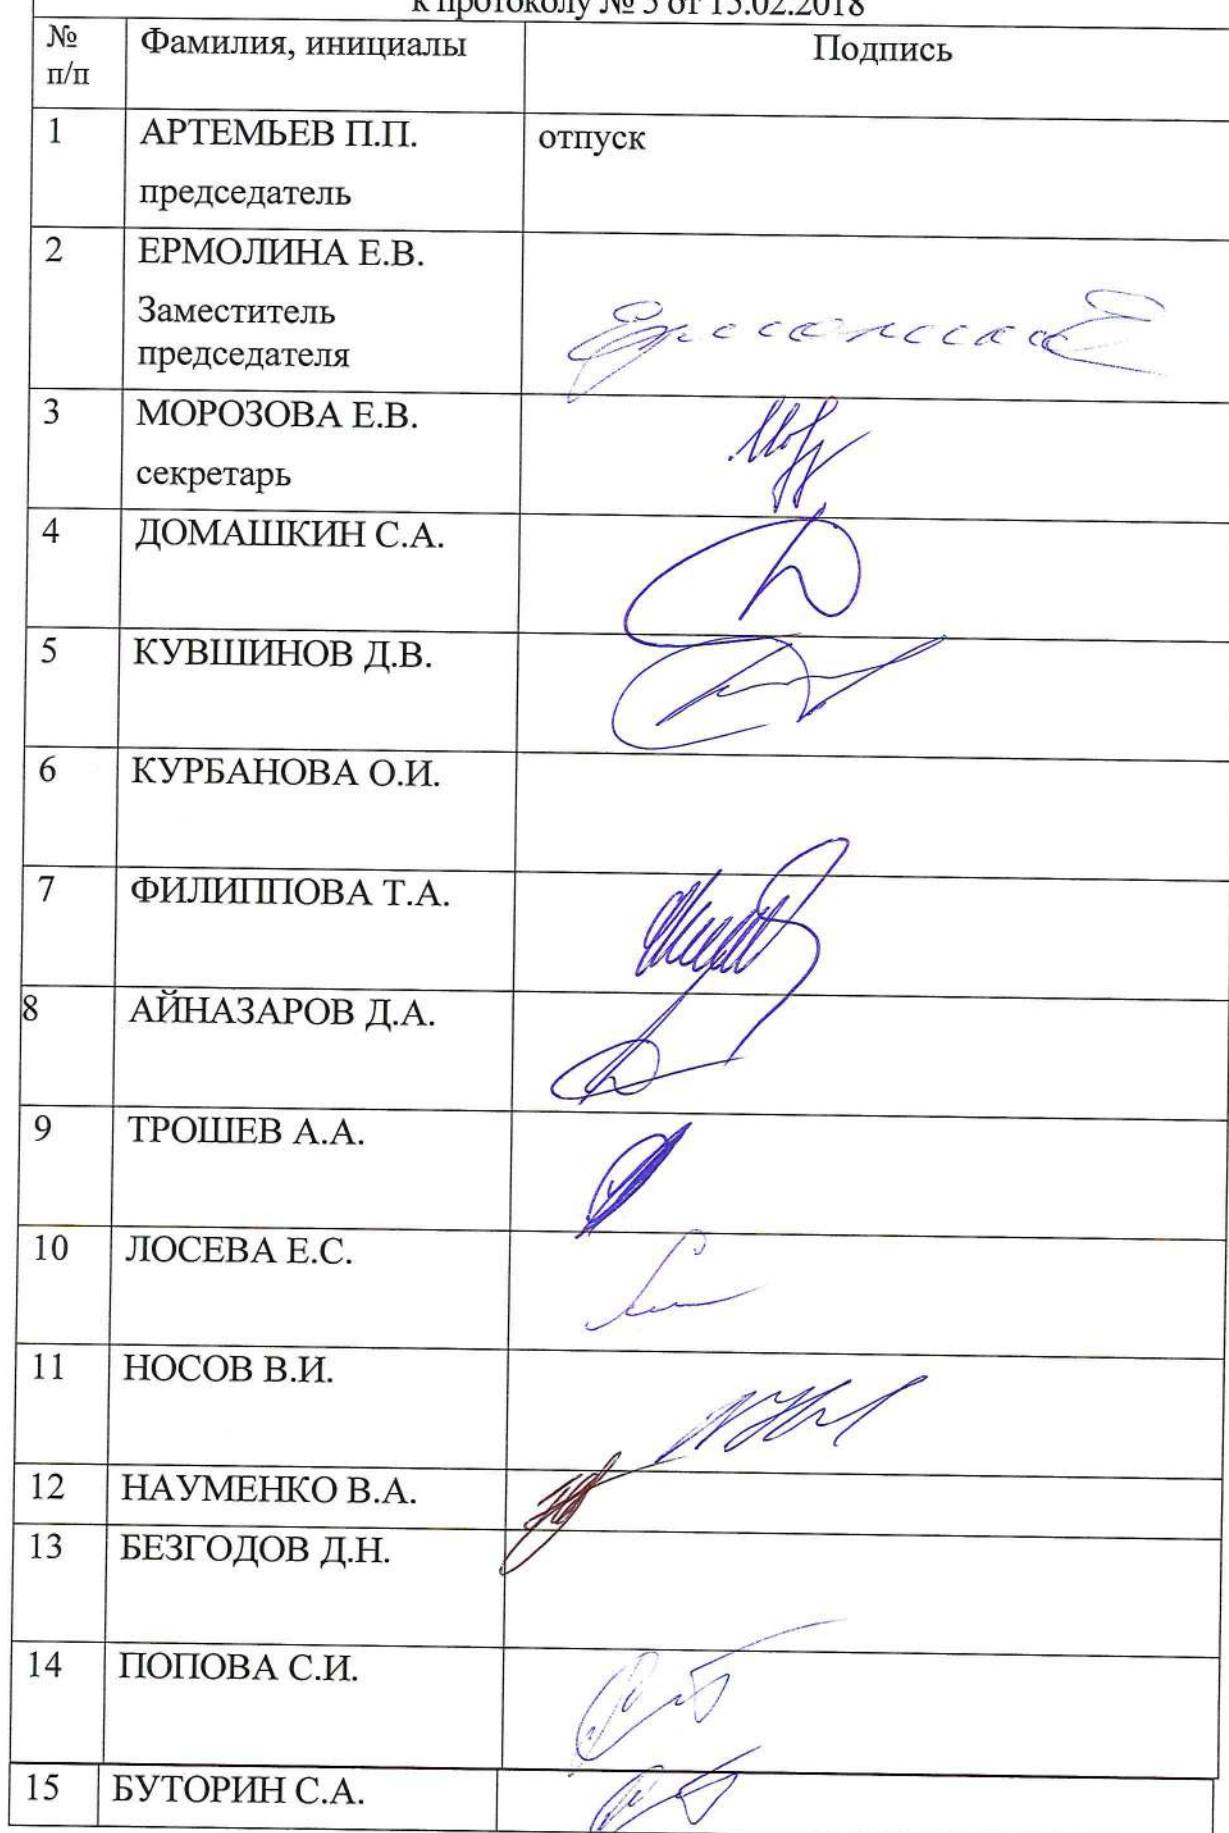 к протоколу № 5 от 15.02.2018
№
п/п
Фамилия, инициалы
Подпись
1
АРТЕМЬЕВ П.П.
председатель
отпуск
2
ЕРМОЛИНА Е.В.
Заместитель
председателя
3
МОРОЗОВА Е.В.
секретарь
4
ДОМАШКИН С.А.
5
КУВШИНОВ Д.В.
6
КУРБАНОВА О.И.
7
ФИЛИППОВА Т.А.
8
АЙНАЗАРОВ Д.А.
9
ТРОШЕВ А.А.
10
ЛОСЕВА Е.С.
11
НОСОВ В.И.
12
НАУМЕНКО В.А.
13
БЕЗГОДОВ Д.Н.
14
ПОПОВА С.И.
15
БУТОРИН С.А.